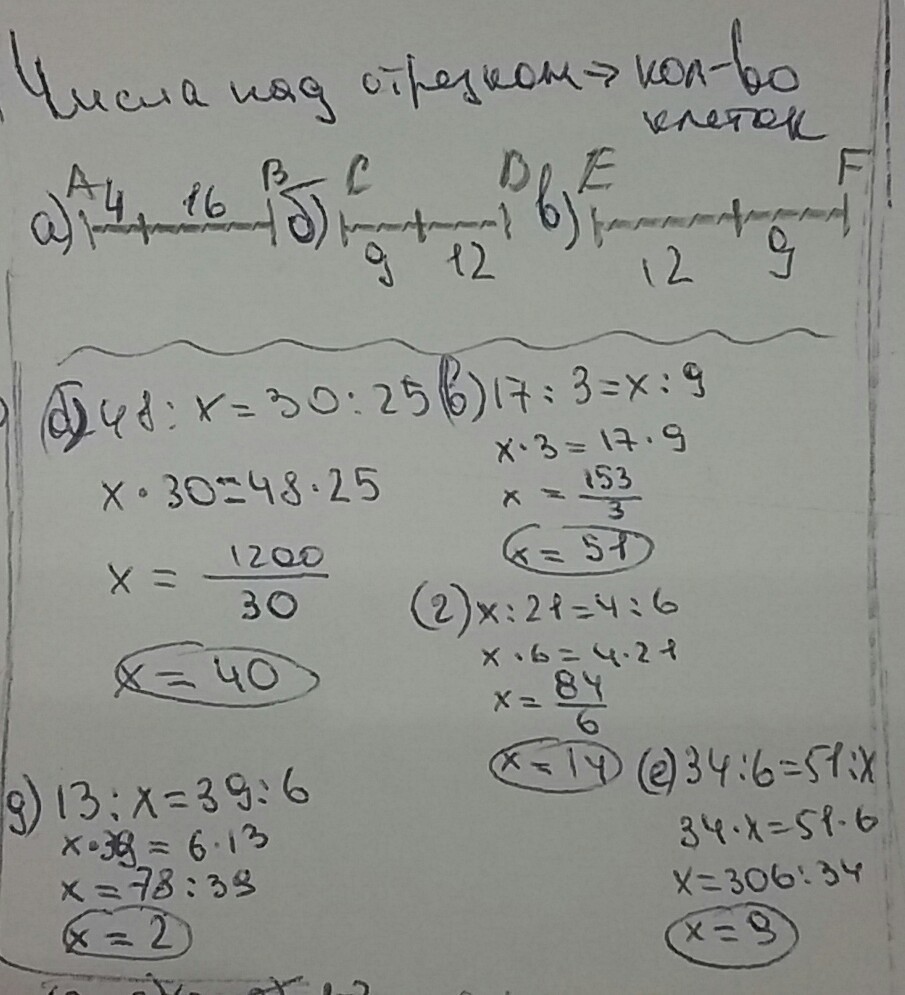 Числа над отрезком ⇒ кол-во
клеток
а) A 4 16 B б) C 9 12 D в) E 12 9 F
б) 48 : x = 30 : 25
x · 30 = 48 · 25
x = 1200/30
x = 40
в) 17 : 3 = x : 9
x · 3 = 17 · 9
x = 153/3
x = 51
г) x : 21 = 4 : 6
x · 6 = 4 · 21
x = 84/6
x = 14
д) 13 : x = 39 : 6
x · 39 = 6 · 13
x = 78 : 39
x = 2
е) 34 : 6 = 51 : x
34 · x = 51 · 6
x = 306 : 34
x = 9